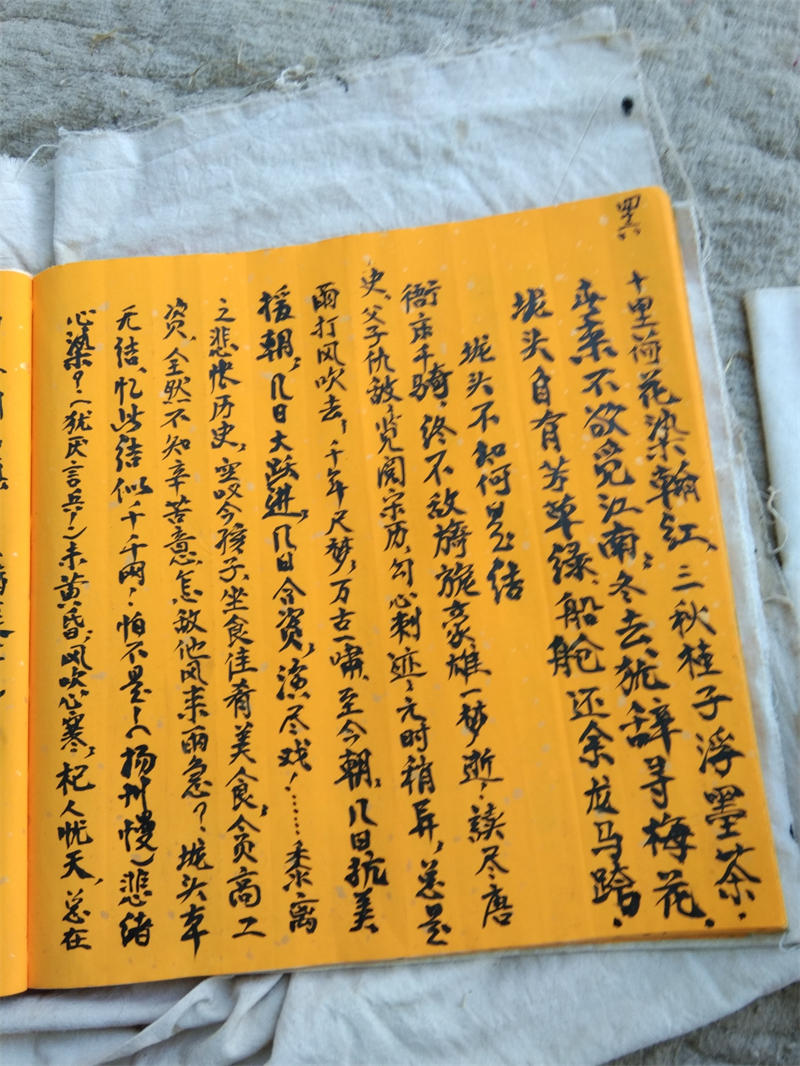 四十六
十里荷花染翰红、三秋桂子浮墨茶.
春来不欲觅江南;冬去犹辞寻梅花.
垅头自有芳草绿.船舱还余龙马跨.
垅头不知何思结
衙床千骑.终不敌旖旎豪雄一梦逝;读尽唐
史、父子仇敌;览阅宋历,勾心刺迹;元时稍异,总是
雨打风吹去;千年尺梦,万古一啸,至今朝,几日抗美
援朝,几日大跃进,几日合资,演尽戏!……黍离
之悲怅历史,空叹今孩子,坐食佳肴美食,贪高工
资,全然不知辛苦意怎敌他风来雨急?垅头本
无结,忆此结似千千网;怕不是~(扬州慢)悲绪
心染?(犹厌言兵!)未黄昏,风吹心寒,杞人忧天,总在